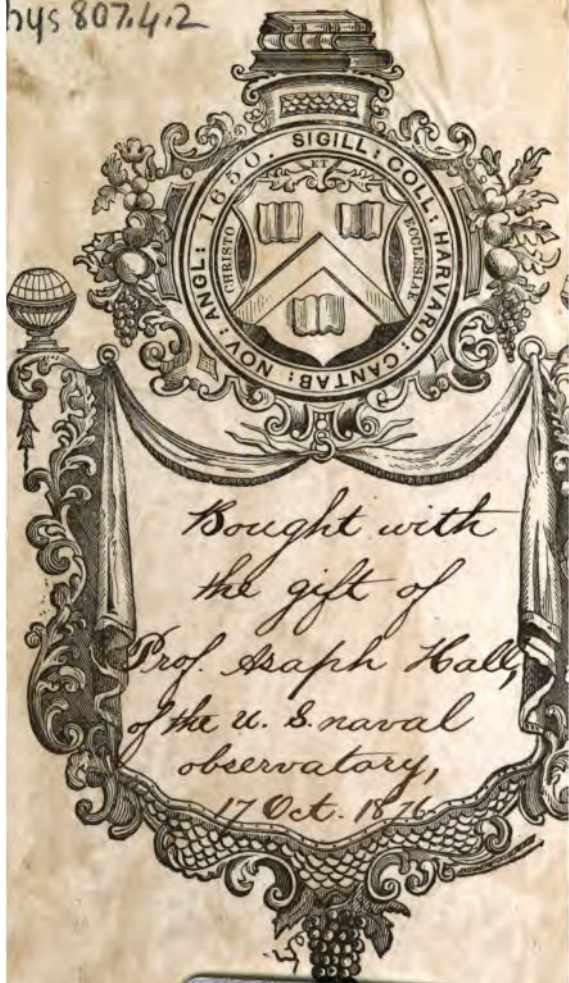 hys 807.4.2
SIGILL: COLL: HARVARD: CANTAB: NOV: ANGL: 1650.
ET
CHRISTO
ECCLESIAE
Bought with
the gift of
Prof. Asaph Hall,
of the U. S. naval
observatory,
17 Oct. 1876